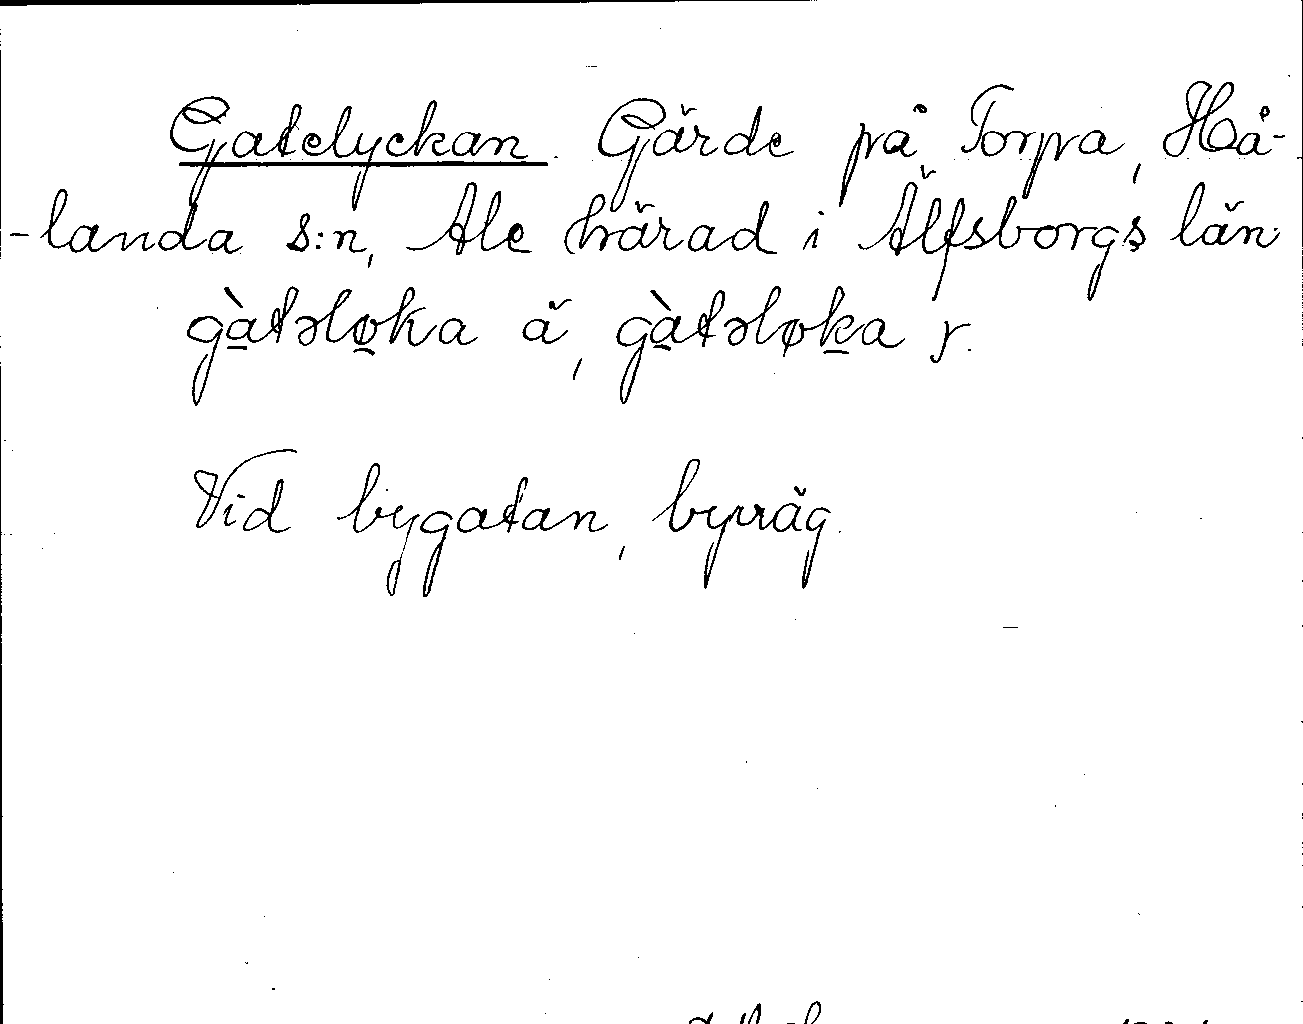 Gatelyckan. Gärde på Torpa, Hå-
-landa s:n, Ale härad i Älfsborgs län
gàtəløka ä, gàtəløka y.
Vid bygatan, byväg.